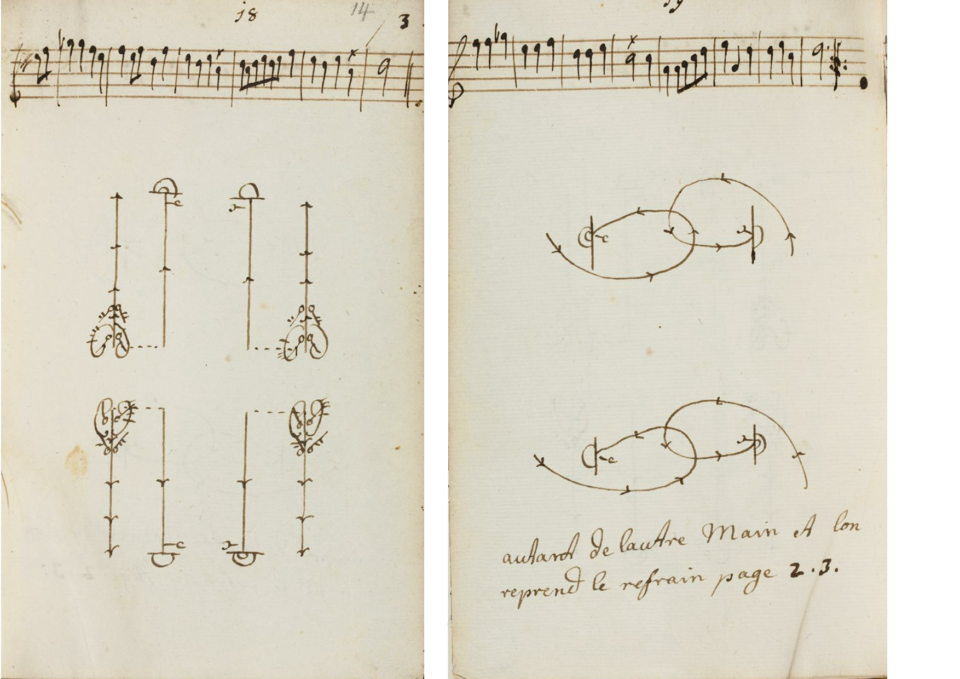 18
14
3
19
autant de lautre Main et lon
reprend le refrain page 2.3.